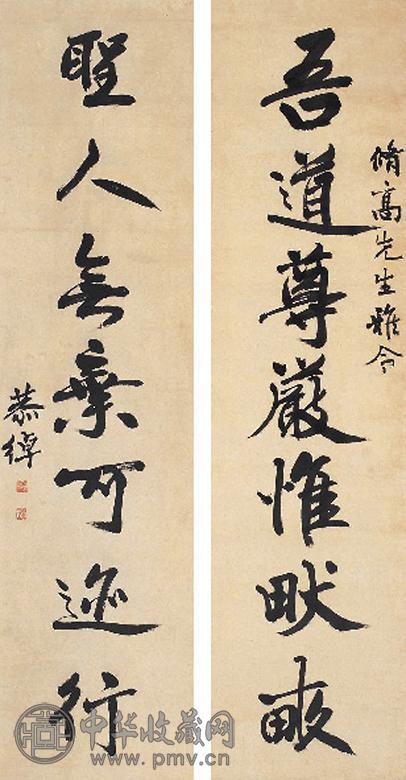 吾道尊嚴惟畎畝
脩高先生雅令
聖人無棄可迹行
恭綽
中华收藏网
www.pmv.cn